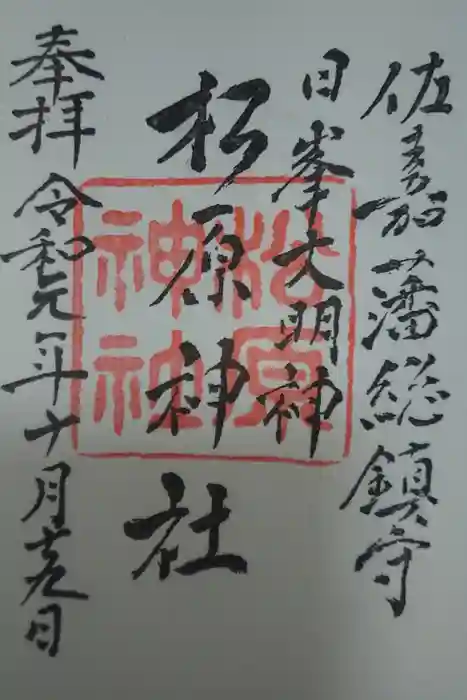 佐嘉藩総鎮守
日峯大明神
松原神社
松原
神社
奉拝 令和元年十月十九日